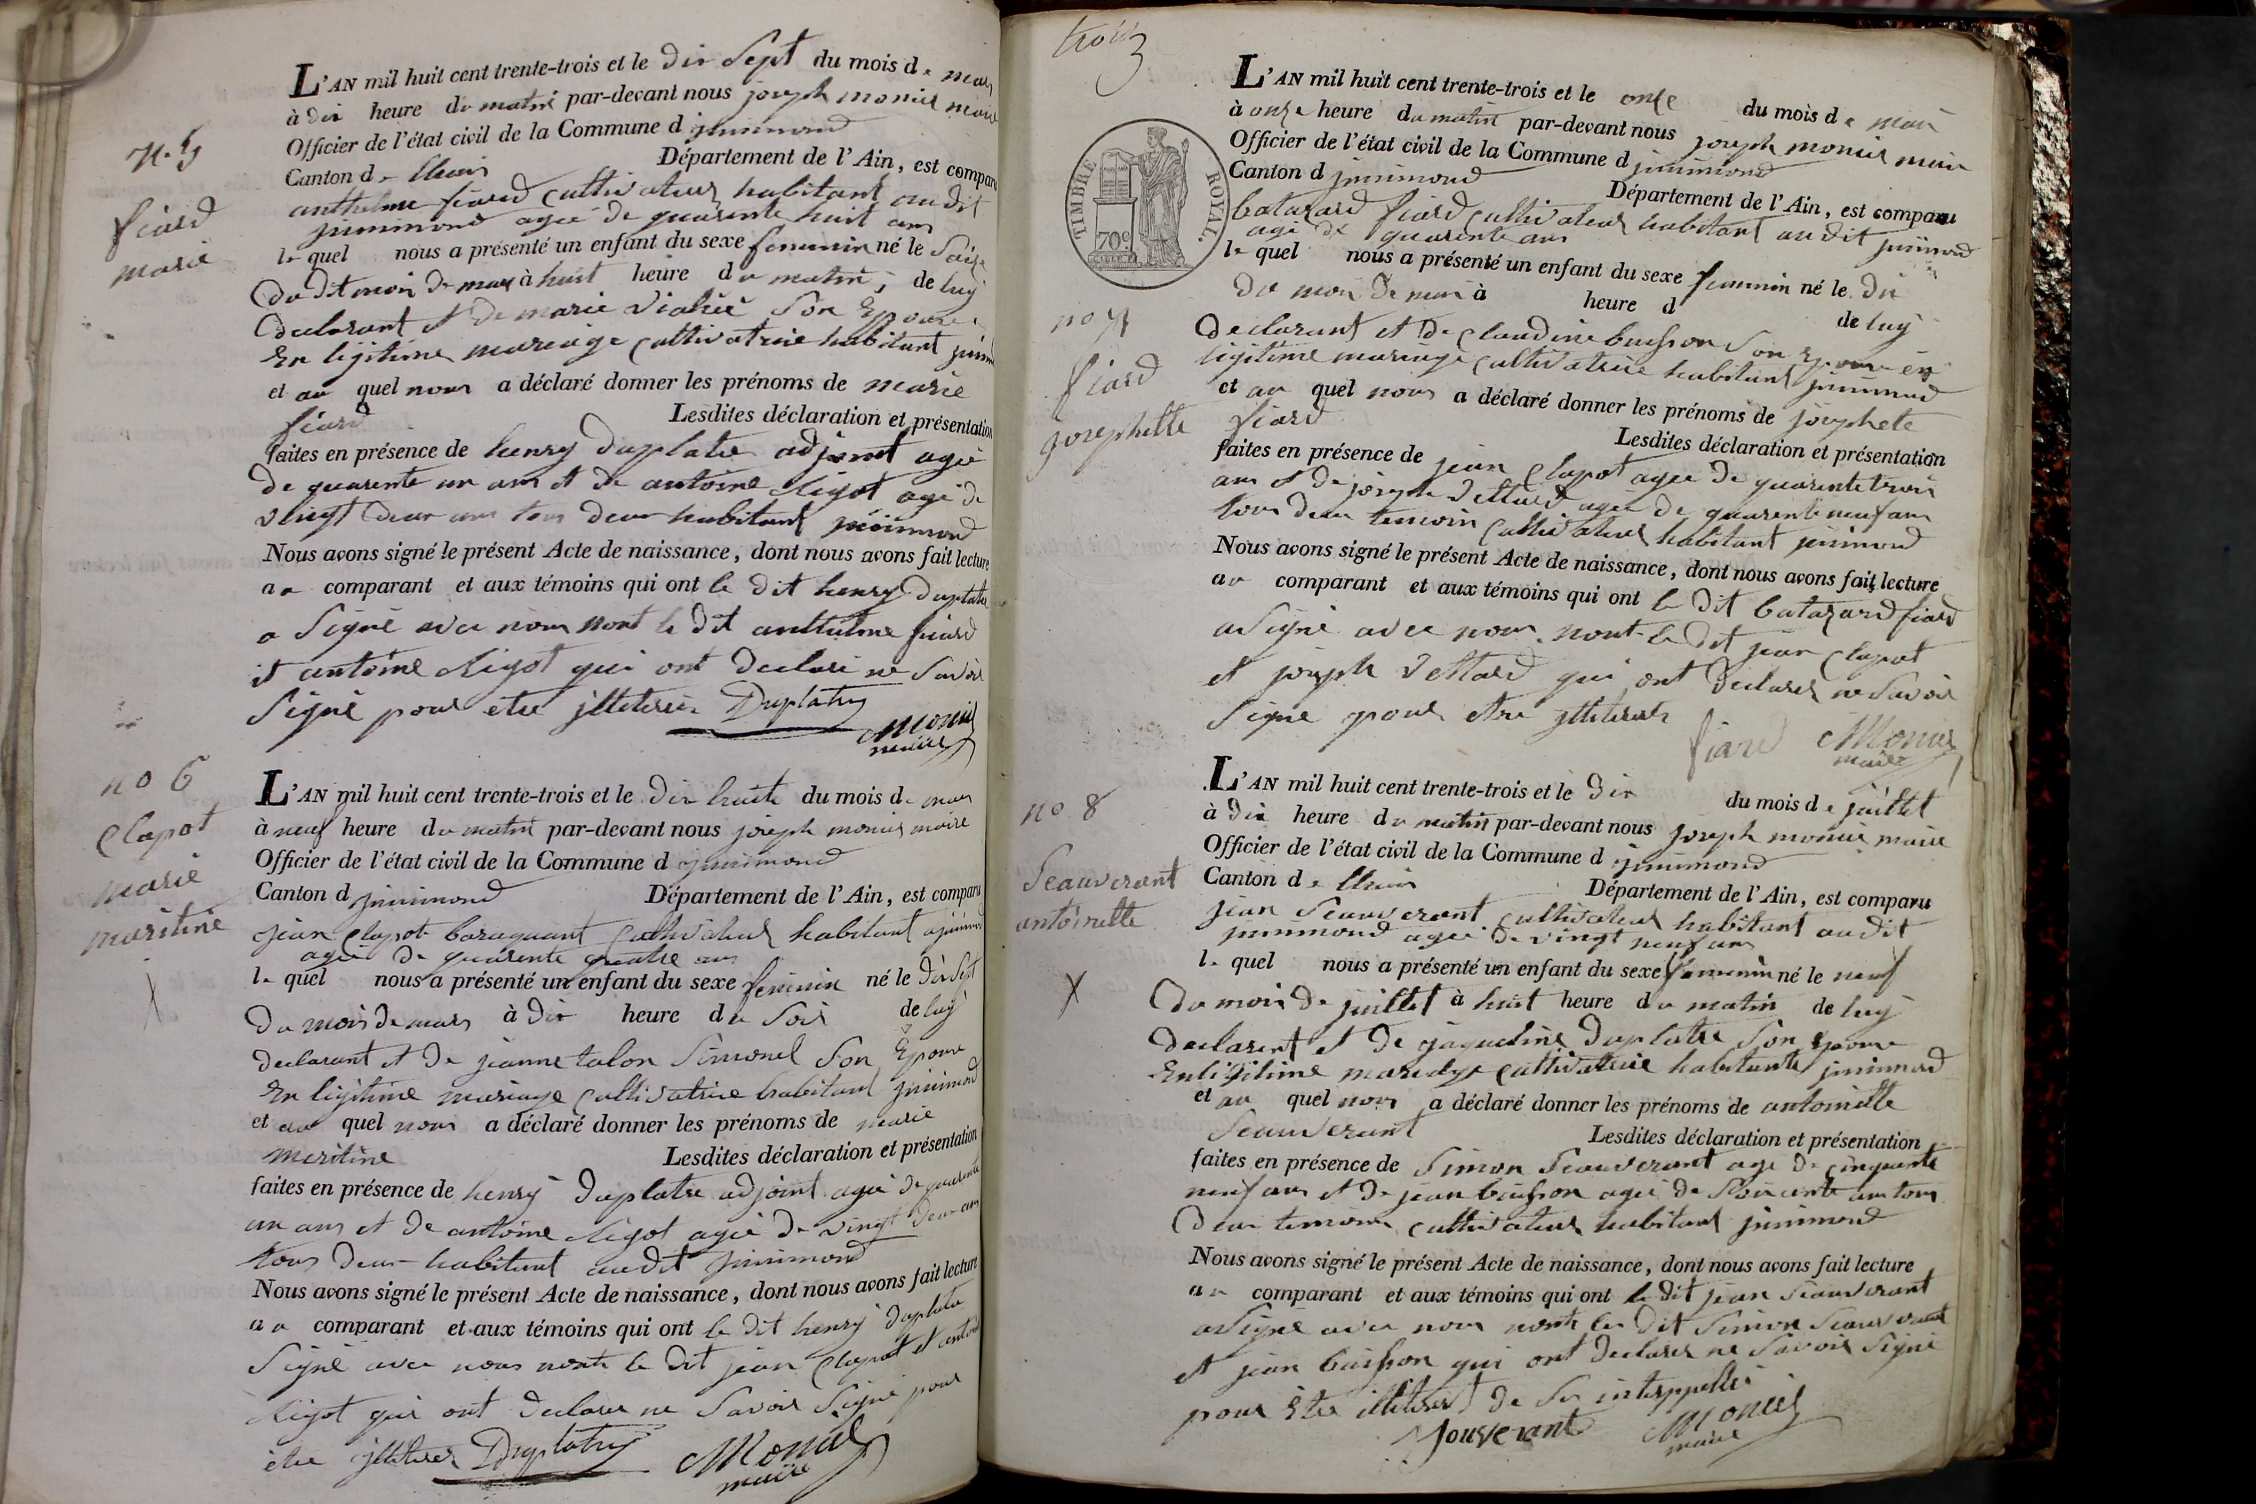 N. 5
fiard
marie
L'AN mil huit cent trente-trois et le dix Sept du mois de mars
à dix heure du matin par-devant nous joseph monier maire
Officier de l'état civil de la Commune d jnnimond
Canton d
Département de l'Ain, est comparu
anthelme fiard cultivateur habitant audit
jnnimond agée de quarente huit ans
le quel nous a présenté un enfant du sexe feminin né le Saize
du dit moi de mars à huit heure du matin, de luy
declarant et de marie Son Epouse
En ligitime mariage cultivatrice habitant
et au quel nous a déclaré donner les prénoms de marie
fiard Lesdites déclaration et présentation
faites en présence de henry duplatre adjoint agée
de quarente un ans et de antoine agé de
vingt deux ans tous deux habitant
Nous avons signé le présent Acte de naissance, dont nous avons fait lecture
au comparant et aux témoins qui ont le dit henry duplatre
a Signé avec nous nont le dit anthelme fiard
et antoine qui ont declaré ne Savoir
Signé pour etre Duplatre
Monier
maire
no 6
Clapot
marie
maritine
L'AN mil huit cent trente-trois et le dix huite du mois de mars
à neuf heure du matin par-devant nous joseph monier maire
Officier de l'état civil de la Commune d jnnimond
Canton d jnnimond Département de l'Ain, est comparu
jean Clapot baraquant cultivateur habitant
agée de quarente quatre ans
le quel nous a présenté un enfant du sexe feminin né le dix Sept
du mois de mars à dix heure du Soir de luy
declarant et de jeanne talon Simonel Son Epouse
En ligitime mariage cultivatrice habitant jnnimond
et au quel nous a déclaré donner les prénoms de marie
meritine Lesdites déclaration et présentation
faites en présence de henry duplatre adjoint agée de quarente
un ans et de antoine agée de vingt deux ans
tous deux habitant audit jnnimond
Nous avons signé le présent Acte de naissance, dont nous avons fait lecture
au comparant et aux témoins qui ont le dit henry duplatre
Signé avec nous nont le dit jean Clapot et antoine
qui ont declarer ne Savoir Signé pour
etre Duplatre Monier
maire
trois
3
TIMBRE ROYAL.
70c
no 7
fiard
josephette
L'AN mil huit cent trente-trois et le onze du mois de mai
à onze heure du matin par-devant nous joseph monier maire
Officier de l'état civil de la Commune d jnnimond
Canton d jnnimond Département de l'Ain, est comparu
batazard fiard cultivateur habitant audit jnnimond
agé de quarente ans
le quel nous a présenté un enfant du sexe feminin né le dix
du moi de mai à heure d de luy
declarant et de Claudine buisson Son Epouse en
ligitime mariage cultivatrice habitant jnnimond
et au quel nous a déclaré donner les prénoms de josephete
fiard Lesdites déclaration et présentation
faites en présence de jean Clapot agée de quarente trois
ans et de joseph Vettard agée de quarente neuf ans
tous deux temoin cultivateur habitant jnnimond
Nous avons signé le présent Acte de naissance, dont nous avons fait lecture
au comparant et aux témoins qui ont le dit batazard fiard
a Signé avec nous nont le dit jean Clapot
et joseph Vettard qui ont declarer ne Savoir
Signé pour etre
fiard Monier
maire
no 8
Seauverant
antoinette
L'AN mil huit cent trente-trois et le dix du mois de juillet
à dix heure du matin par-devant nous joseph monier maire
Officier de l'état civil de la Commune d jnnimond
Canton d
Département de l'Ain, est comparu
jean Seauverant cultivateur habitant audit
jnnimond agée de vingt neuf ans
le quel nous a présenté un enfant du sexe femenin né le neuf
du moi de juillet à huit heure du matin de luy
declarent et de jaqueline duplatre Son Epouse
En ligitime mariage cultivatrice habitante jnnimond
et au quel nous a déclaré donner les prénoms de antoinette
Seauverant Lesdites déclaration et présentation
faites en présence de Simon Seauverant age de cinquante
neuf ans et de jean buisson agée de Soixante ans tous
deux temoins cultivateur habitant jnnimond
Nous avons signé le présent Acte de naissance, dont nous avons fait lecture
au comparant et aux témoins qui ont le dit jean Seauverant
a Signé avec nous nont les dit Simon Seauverant
et jean buisson qui ont declarer ne Savoir Signé
pour Etre de Se
Souverant Monier
maire